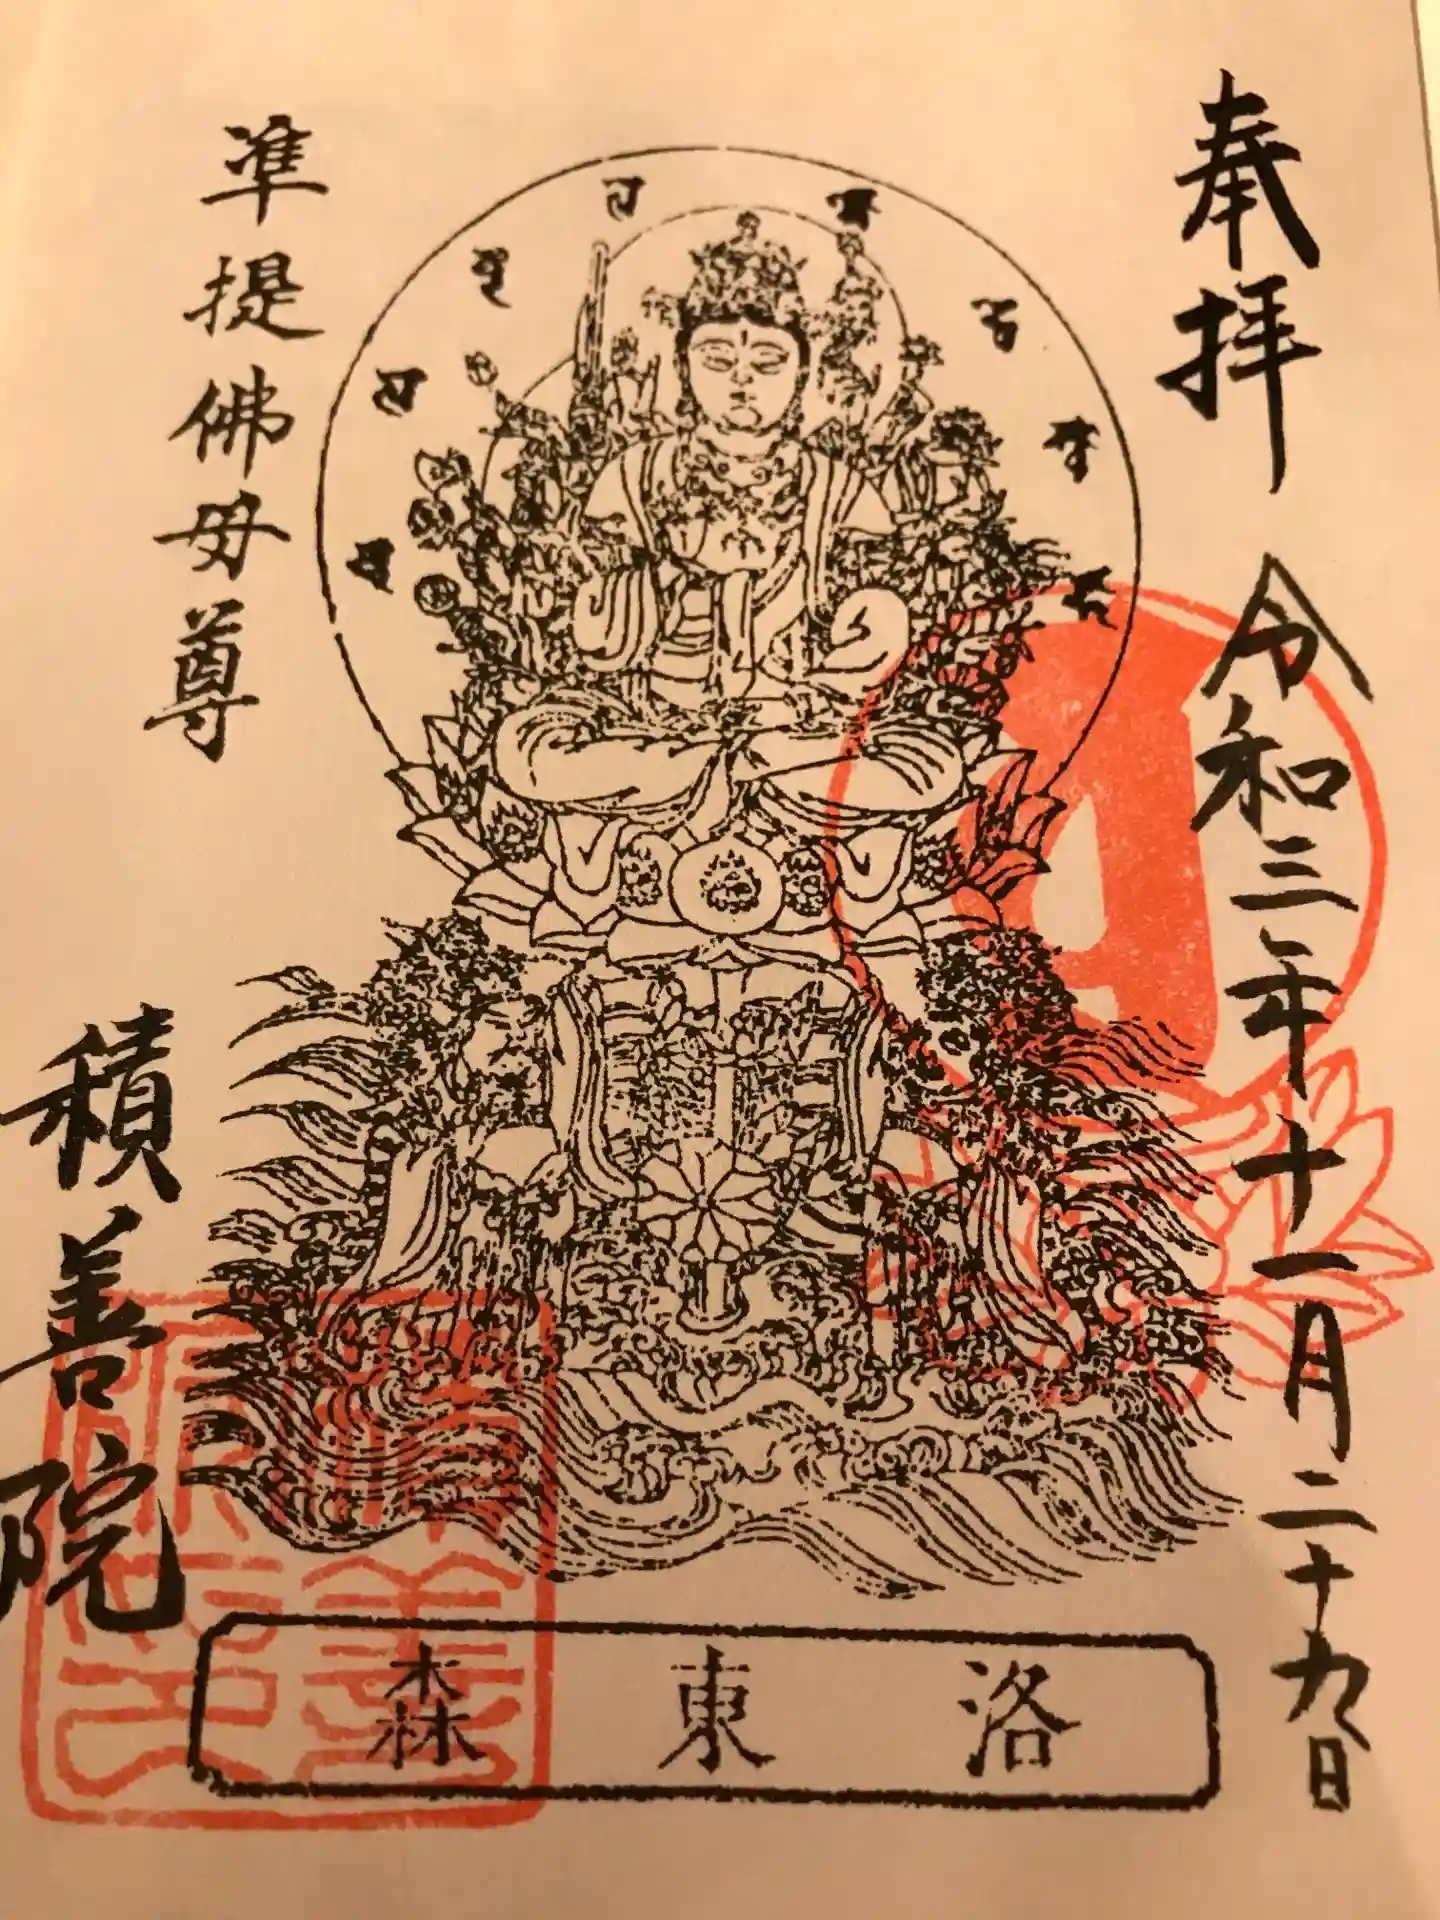 奉拝
令和三年十一月二十九日
准提佛母尊
積善院
洛東森